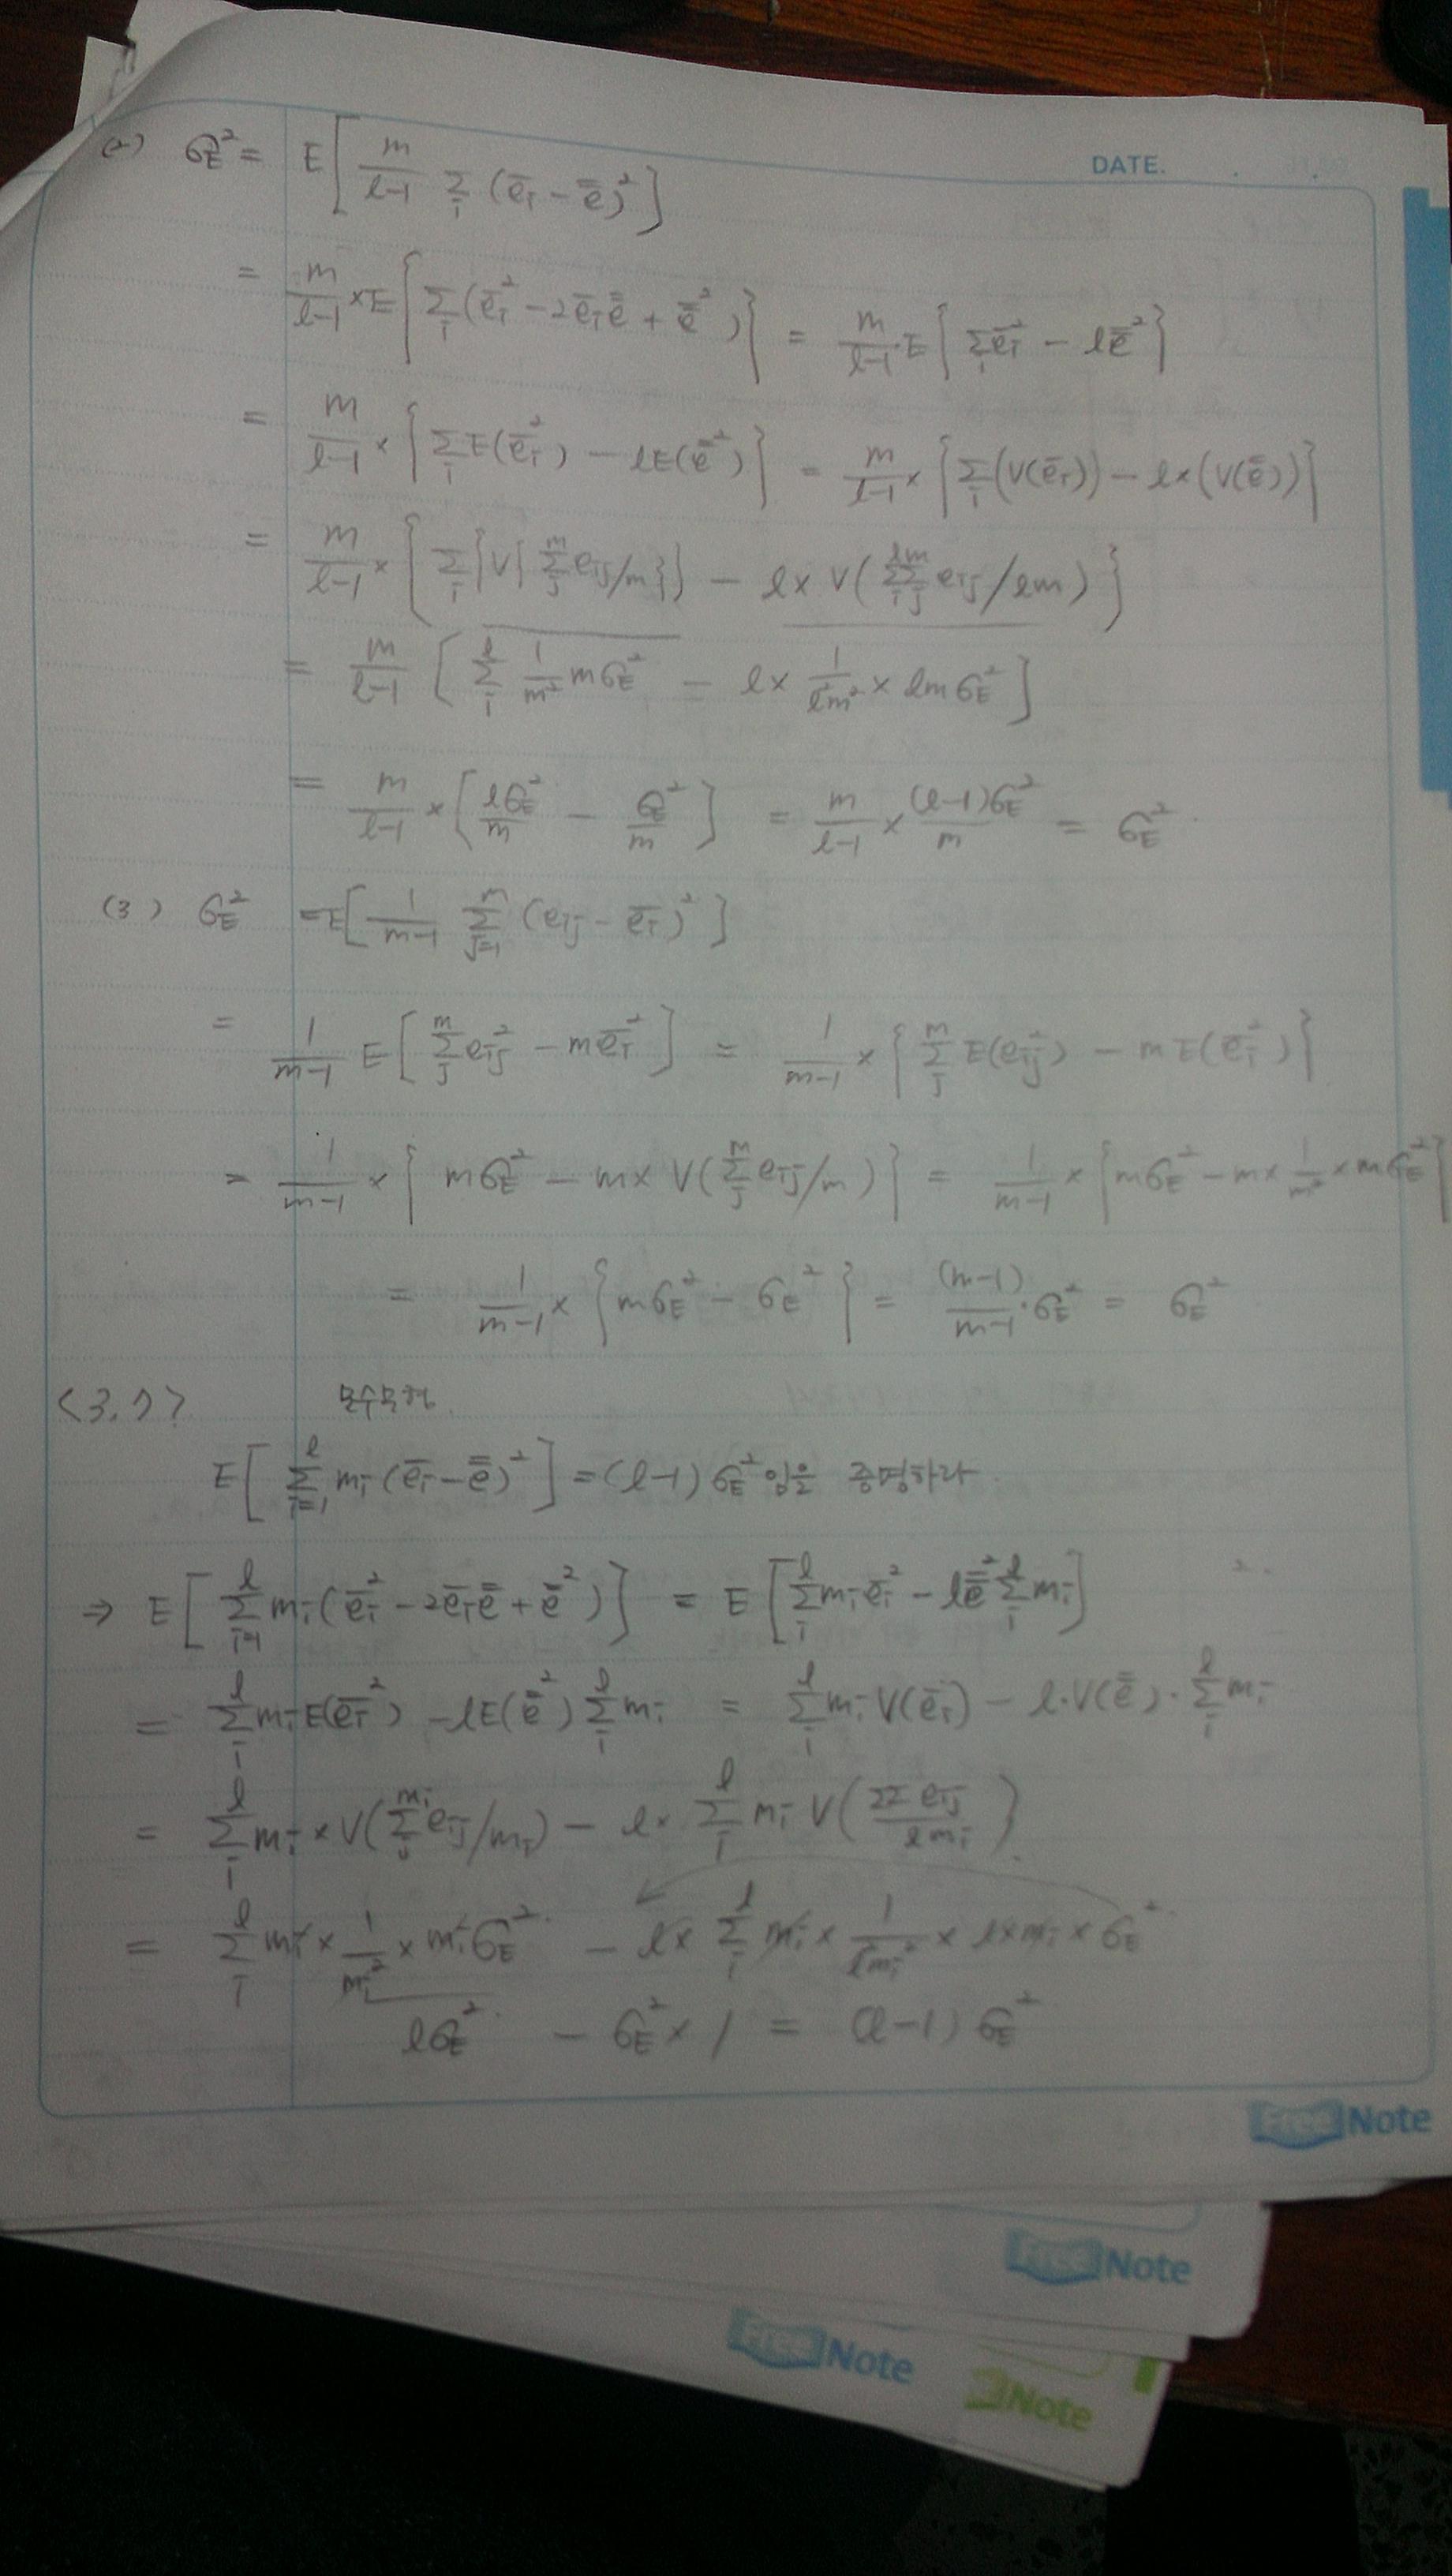 DATE. . .
(2) σE² = E[ m/(l-1) Σi (ēi - e̿)² ]
= m/(l-1) × E{ Σi (ēi² - 2ēi e̿ + e̿²) } = m/(l-1) · E{ Σi ēi² - l e̿² }
= m/(l-1) × { Σi E(ēi²) - lE(e̿²) } = m/(l-1) × { Σi (V(ēi)) - l×(V(e̿)) }
= m/(l-1) × { Σi {V{ Σj^m eij/m }} - l× V( Σi^l Σj^m eij/lm ) }
= m/(l-1) [ Σi^l 1/m² mσE² - l× 1/l²m² × lmσE² ]
= m/(l-1) × [ lσE²/m - σE²/m ] = m/(l-1) × (l-1)σE²/m = σE²
(3) σE² = E[ 1/(m-1) Σj=1^m (eij - ēi)² ]
= 1/(m-1) E[ Σj^m eij² - mēi² ] = 1/(m-1) × { Σj^m E(eij²) - mE(ēi²) }
= 1/(m-1) × { mσE² - m× V( Σj^m eij/m ) } = 1/(m-1) × { mσE² - m× 1/m² × mσE² }
= 1/(m-1) × { mσE² - σE² } = (m-1)/(m-1) · σE² = σE²
<3.7> 모수모형
E[ Σi=1^l mi (ēi - e̿)² ] = (l-1) σE² 임을 증명하라
⇒ E[ Σi=1^l mi (ēi² - 2ēi e̿ + e̿²) ] = E[ Σi^l mi ēi² - l e̿² Σi^l mi ]
= Σi^l mi E(ēi²) - lE(e̿²) Σi^l mi = Σi^l mi V(ēi) - l·V(e̿) · Σi^l mi
= Σi^l mi × V( Σj^mi eij/mi ) - l× Σi^l mi V( ΣΣ eij / l mi )
= Σi^l mi × 1/mi² × mi σE² - l× Σi^l mi × 1/l²mi² × l×mi × σE²
lσE² - σE² × 1 = (l-1) σE²
Free Note
Free Note
Free Note
Note